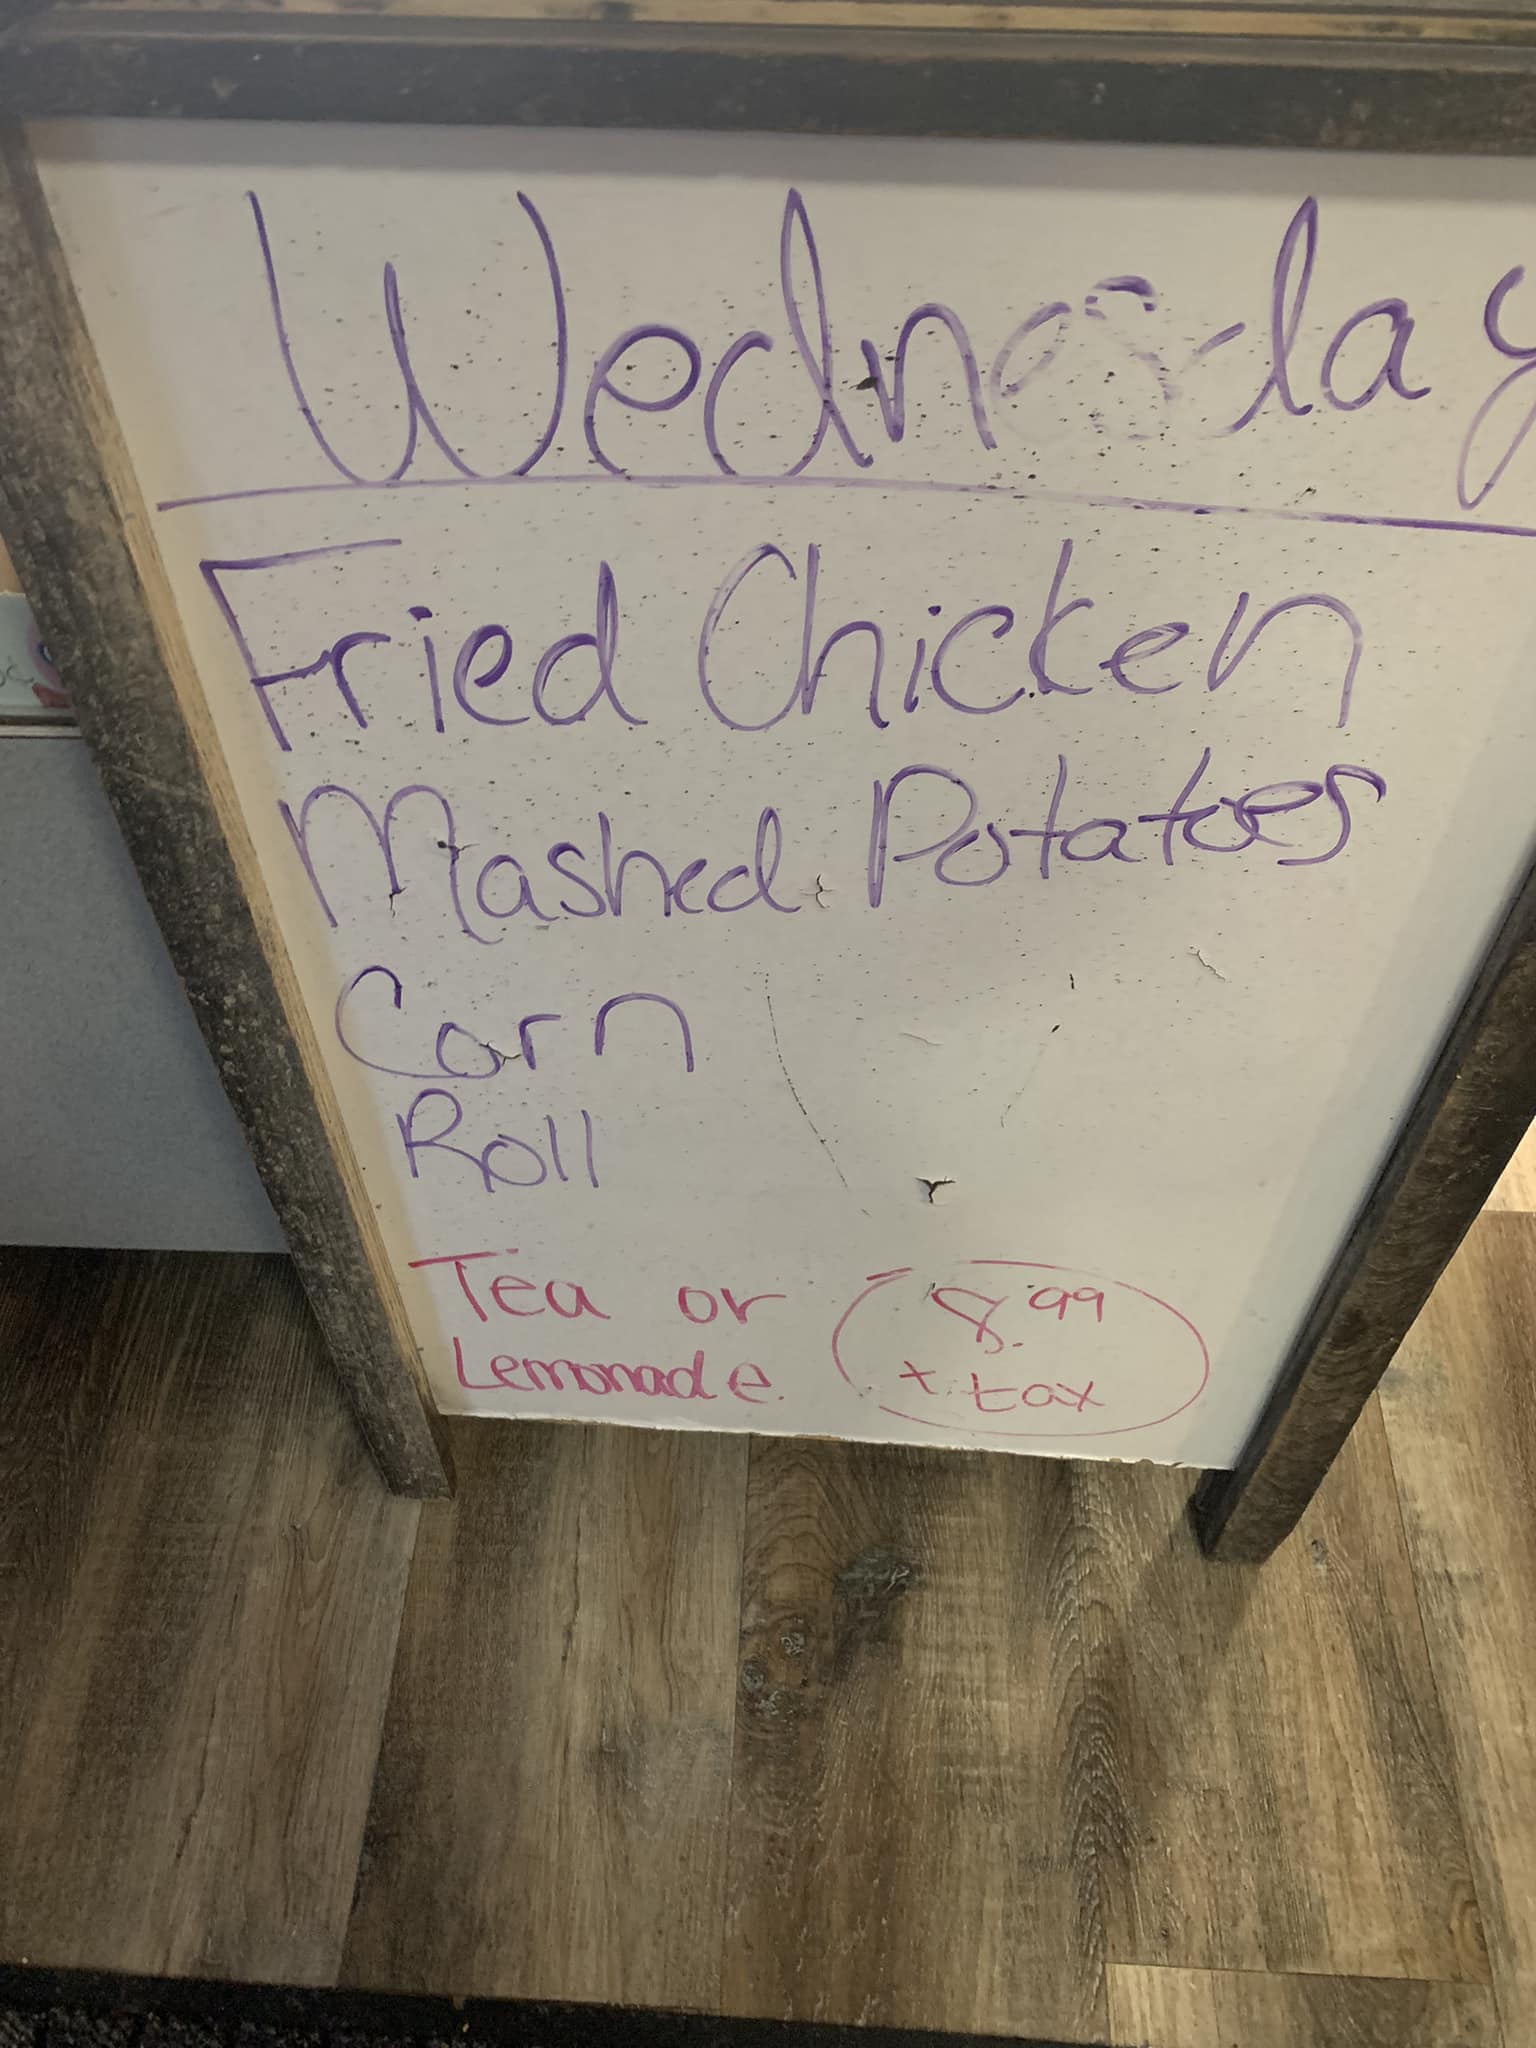 Wednesday
Fried Chicken
Mashed Potatoes
Corn
Roll
Tea or
Lemonade
8.99
+ tax